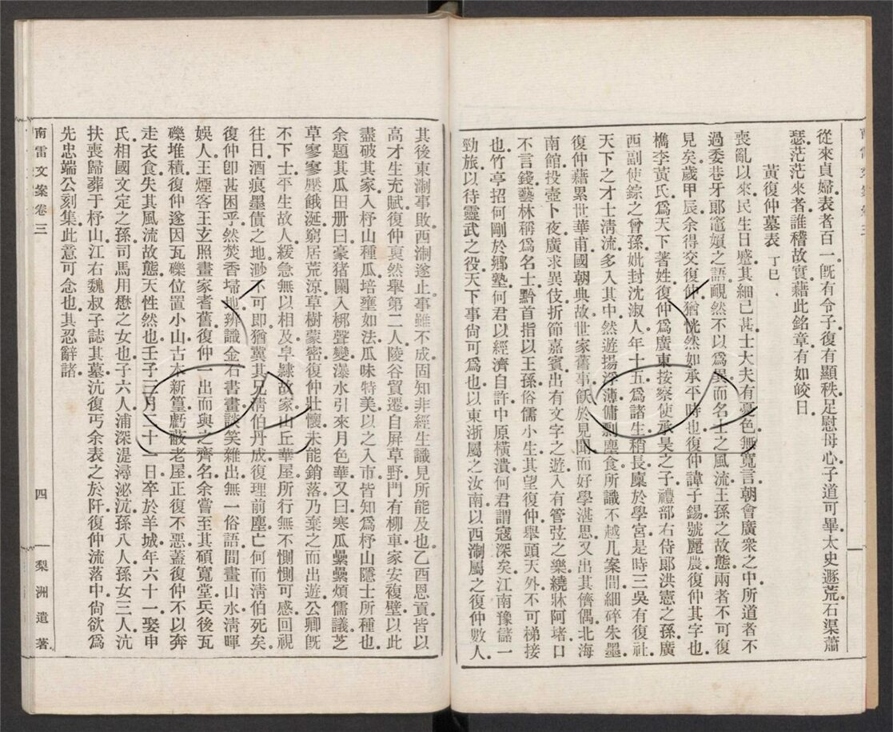 南雷文案卷三
從來貞婦表者百一旣有令子復有顯秩足慰母心子道可畢太史遯荒石渠蕭
瑟茫茫來者誰稽故實藉此銘章有如皎日
黃復仲墓表 丁巳
喪亂以來民生日蹙其細已甚士大夫有憂色無寬言朝會廣衆之中所道者不
過委巷牙郎竈媼之語靦然不以爲異而名士之風流王孫之故態兩者不可復
見矣歲甲辰余得交復仲猶恍然如承平時也復仲諱子錫號麗農復仲其字也
檇李黃氏爲天下著姓復仲爲廣東按察使承昊之子禮部右侍郎洪憲之孫廣
西副使錝之曾孫妣封沈淑人年十五爲諸生稍長廩於學宮是時三吳有復社
天下之才士淸流多入其中然遊揚浮薄傭剽塵食所識不越几案間細碎朱墨
復仲藉累世華甫國朝典故世家舊事飫於見聞而好學湛思又出其儕偶北海
南館投壺卜夜廣求異伎折節嘉賓出有文字之遊入有管弦之樂繞牀阿堵口
不言錢藝林稱爲名士黔首指以王孫俗儒小生其望復仲舉頭天外不可梯接
也竹亭招何剛於鄉塾何君以經濟自許中原橫潰何君謂寇深矣江南豫儲一
勁旅以待靈武之役天下事尙可爲也以東浙屬之汝南以西浙屬之復仲數人
其後東浙事敗西浙遂止事雖不成固知非經生識見所能及也乙酉恩貢皆以
高才生充賦復仲裒然舉第二人陵谷貿遷自屏草野門有柳車家女複壁以此
盡破其家入杼山種瓜培壅如法瓜味特美以之入市皆知爲杼山隱士所種也
余題其瓜田册曰豪猪闌入梛聲變瀑水引來月色華又曰寒瓜纍纍煩儒議芝
草寥寥壓餓涎窮居荒涼草樹蒙密復仲壯懷未能銷落乃棄之而出遊公卿旣
不下士平生故人緩急無以相及皁隸故家山丘華屋所行無不惻惻可感回視
往日酒痕墨債之地渺不可卽猶冀其兄淸伯丹成復理前塵亡何而淸伯死矣
復仲卽甚困乎然焚香埽地辨識金石書畫談笑雜出無一俗語間畫山水淸暉
娛人王煙客王玄照畫家耆舊復仲一出而與之齊名余嘗至其碩寬堂兵後瓦
礫堆積復仲遂因瓦礫位置小山古木新篁虧蔽老屋正復不惡蓋復仲不以奔
走衣食失其風流故態天性然也壬子三月二十一日卒於羊城年六十一娶申
氏相國文定之孫司馬用懋之女也子六人浦深湜潯泌沆孫八人孫女三人沆
扶喪歸葬于杼山江右魏叔子誌其墓沆復丐余表之於阡復仲流落中尙欲爲
先忠端公刻集此意可念也其忍辭諸
南雷文案卷三
四
梨洲遺著